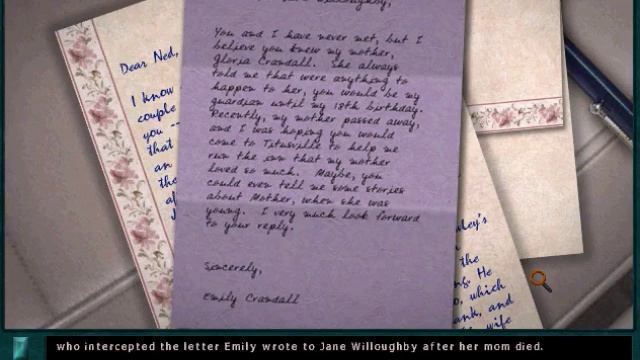 Willoughby,
You and I have never met, but I
believe you knew my mother,
Gloria Crandall. She always
told me that were anything to
happen to her, you would be my
guardian until my 18th birthday.
Recently, my mother passed away,
and I was hoping you would
come to Titusville to help me
run the inn that my mother
loved so much. Maybe, you
could even tell me some stories
about Mother, when she was
young. I very much look forward
to your reply.
Sincerely,
Emily Crandall
Dear Ned,
I know
couple
you --
that
an
the
ley's
the
ng. He
o, which
ank, and
wife
who intercepted the letter Emily wrote to Jane Willoughby after her mom died.